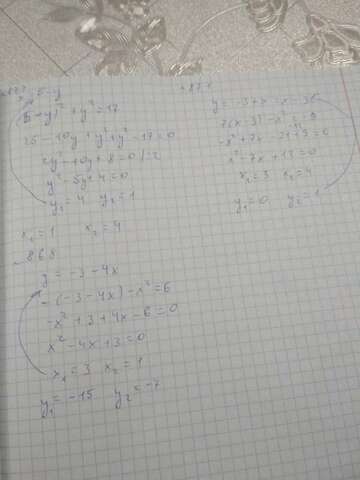 x = 5 - y
(5 - y)² + y² = 17
25 - 10y + y² + y² - 17 = 0
2y² - 10y + 8 = 0 | :2
y² - 5y + 4 = 0
y₁ = 4 y₂ = 1
x₁ = 1 x₂ = 4
868
y = -3 - 4x
-(-3 - 4x) - x² = 6
-x² + 3 + 4x - 6 = 0
x² - 4x + 3 = 0
x₁ = 3 x₂ = 1
y₁ = -15 y₂ = -7
y = -3 + x = x - 3
-x² + 7x
x² - 7x + 12 = 0
x₁ = 3 x₂ = 4
y₁ = 0 y₂ = 1